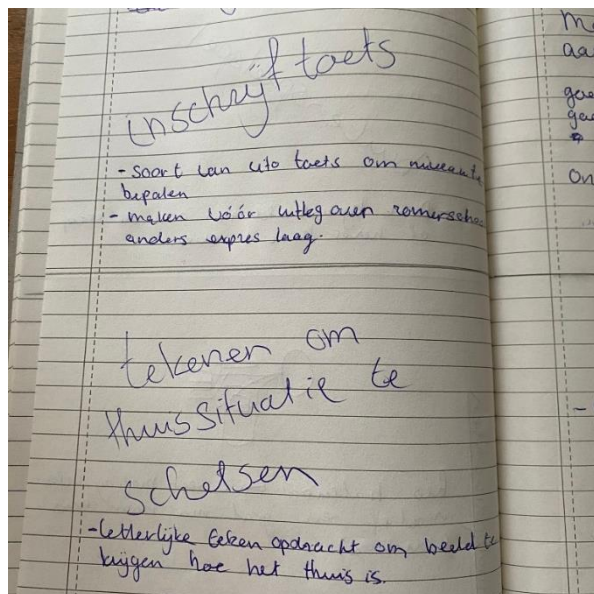 inschrijftoets
- soort van cito toets om niveau te
bepalen
- maken vóór uitleg over zomerscho
anders expres laag.
tekenen om
thuissituatie te
schetsen
- letterlijke teken opdracht om beeld te
krijgen hoe het thuis is.
aa
gee
on
-